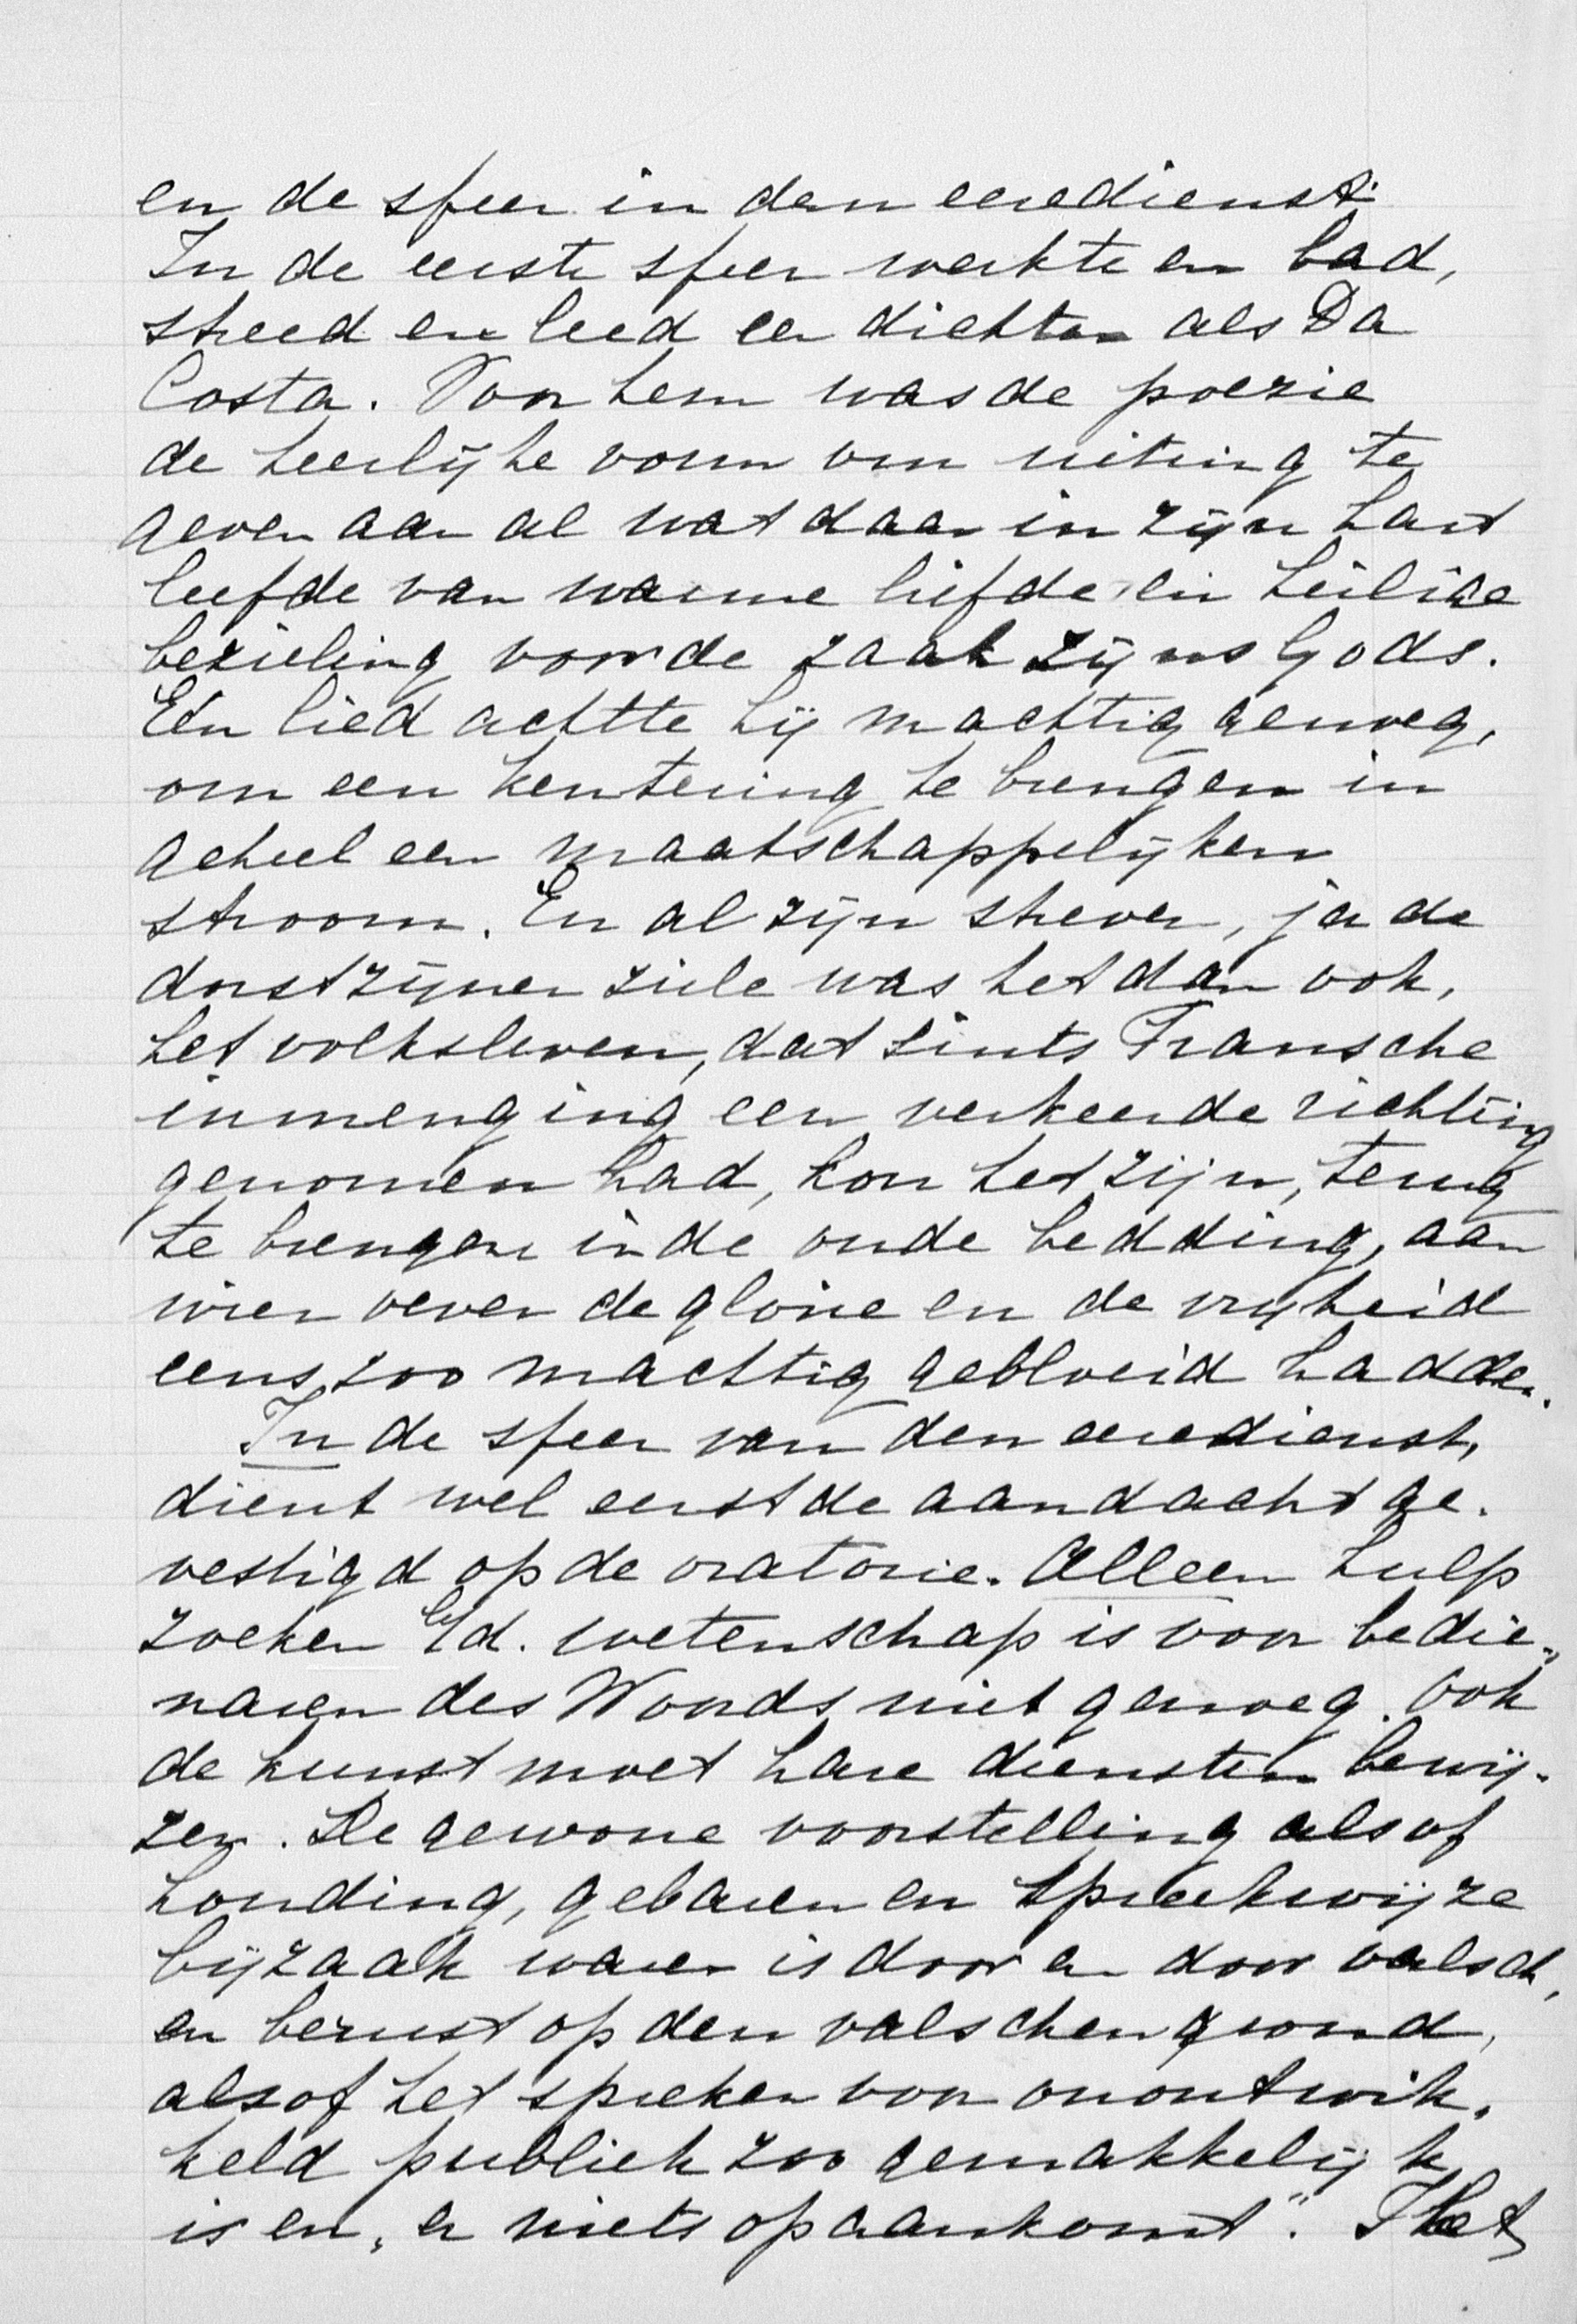 en de sfeer in den eeredienst.
In de eerste sfeer werkte en bad,
streed en leed een dichter als Da
Costa. Voor hem was de poezie
de heerlijke vorm om uiting te
geven aan al wat daar in zijn hart
leefde van warme liefde en heilige
bezieling voor de zaak zijns Gods.
Eén lied achtte hij machtig genoeg,
om een kentering te brengen in
geheel een maatschappelijken
stroom. En al zijn streven, ja de
dorst zijner ziele was het dan ook,
het volksleven, dat sints Fransche
inmenging een verkeerde richting
genomen had, kon het zijn, terug
te brengen in de oude bedding, aan
wier oever de glorie en de vrijheid
eens zoo machtig gebloeid hadden.
In de sfeer van den eeredienst,
dient wel eerst de aandacht ge-
vestigd op de oratorie. Alleen hulp
zoeken Gd. wetenschap is voor bedie-
naren des Woords niet genoeg. Ook
de kunst moet hare diensten bewij-
zen. De gewone voorstelling alsof
houding, gebaren en spreekwijze
bijzaak waren is door en door valsch,
en berust op den valschen grond,
alsof het spreken voor onontwik-
keld publiek zoo gemakkelijk
is en „er niets op aankomt”. Het